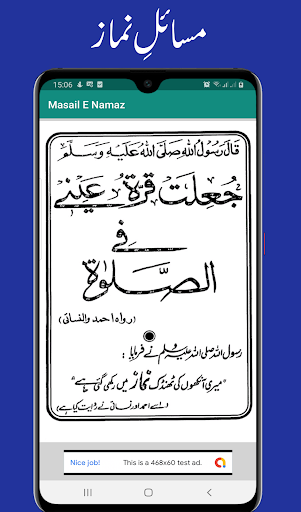 مسائلِ نماز
15:06
Masail E Namaz
قَالَ رَسُوْلُ اللّٰهِ صَلَّى اللّٰهُ عَلَيْهِ وَسَلَّمَ
جُعِلَتْ قُرَّةُ عَيْنِيْ
فِي
الصَّلٰوةِ
(رواه احمد والنسائی)
رسول اللہ صلی اللہ علیہ وسلم نے فرمایا:
"میری آنکھوں کی ٹھنڈک نماز میں رکھی گئی ہے"
(اسے احمد اور نسائی نے روایت کیا ہے)
Nice job!
This is a 468x60 test ad.